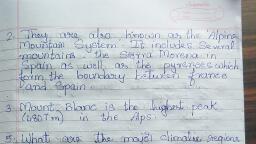 2. They are also known as the Alpine
Mountain System. It includes Several
mountains. the Sierra Morena in
Spain as well as the pyrenees which
form the boundary between france
and Spain.
3. Mount Blanc is the highest peak
(4807m) in the Alps.
5. What are the major climatic regions